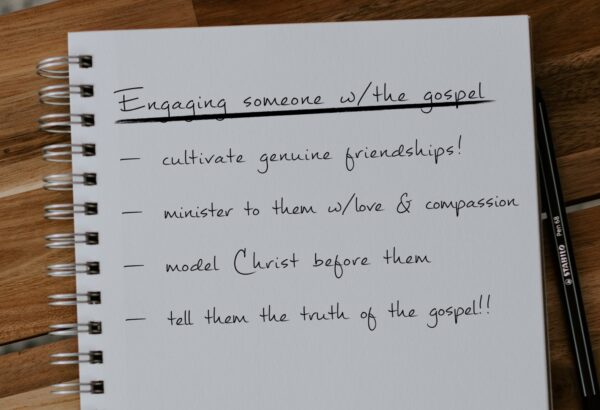 Engaging someone w/the gospel
— cultivate genuine friendships!
— minister to them w/love & compassion
— model Christ before them
— tell them the truth of the gospel!!
STABILO Pen 68